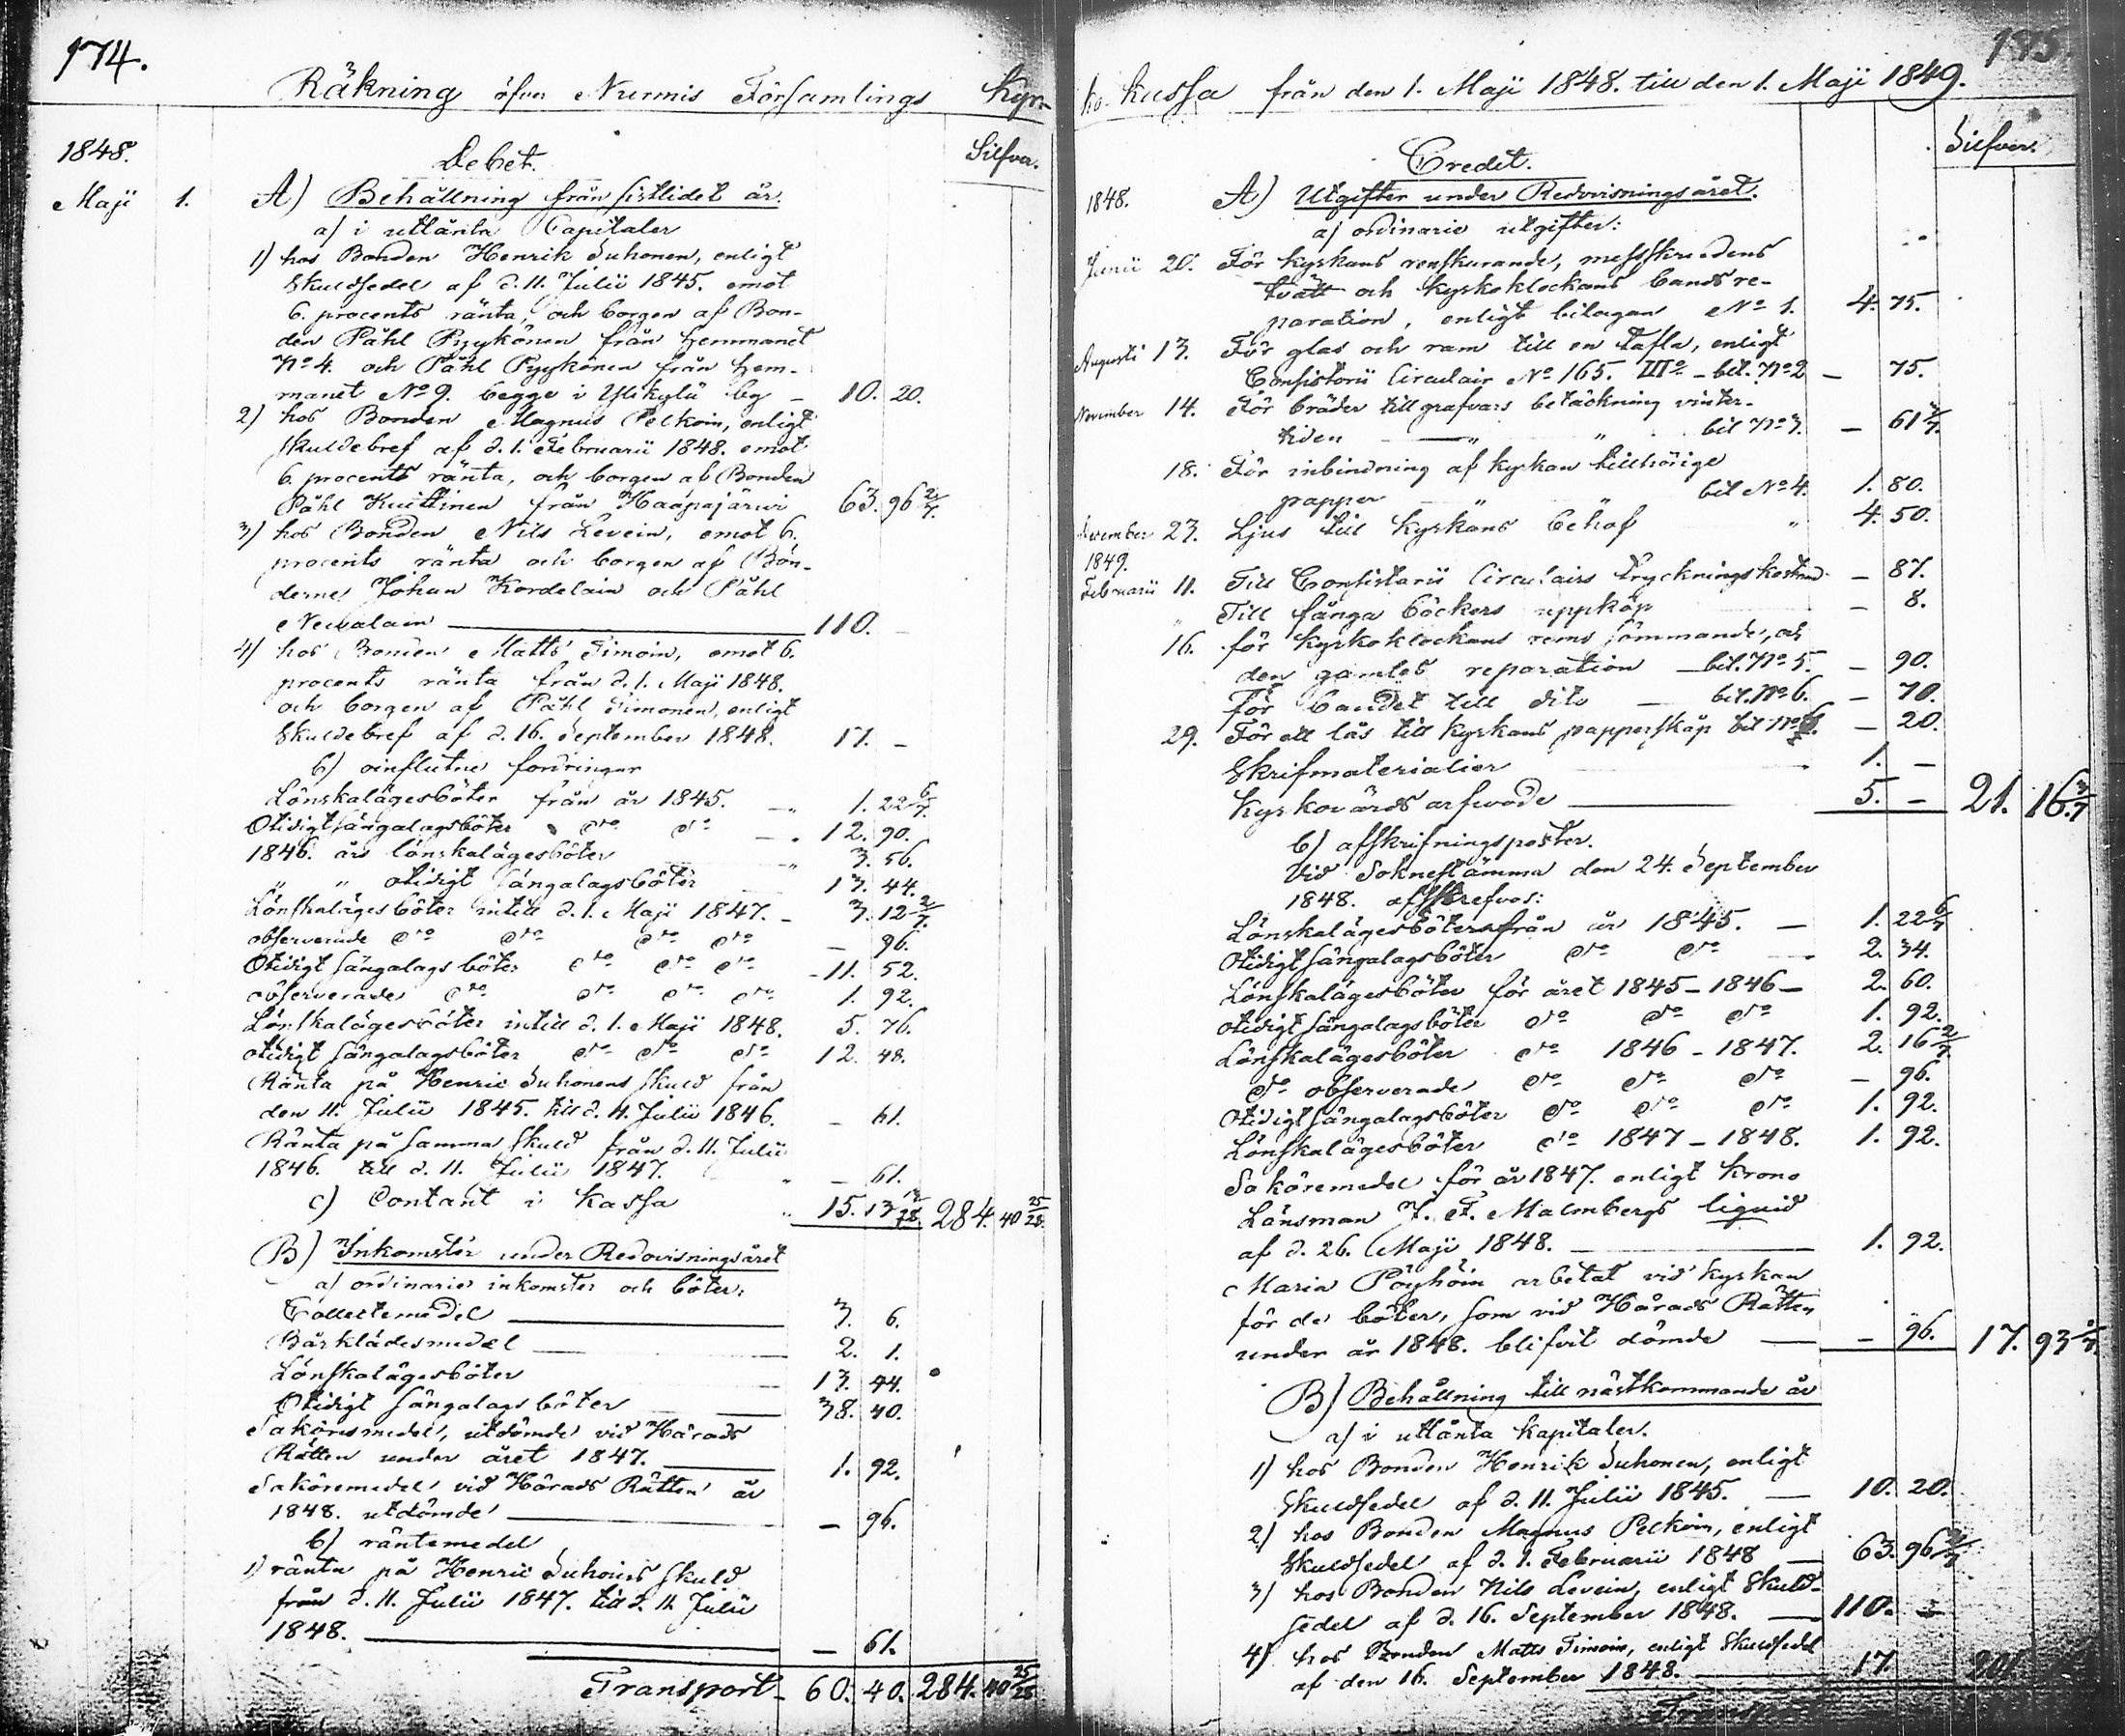 174.
Räkning öfver Nurmis Församlings Kyr-
1848.
Debet.
Silfver.
Maji 1. A) Behållning från sistlidet år.
a) i utlånta Capitaler
1) hos Bonden Henrik Suhonen, enligt
Skuldsedel af d. 11. Julii 1845. emot
6. procents ränta, och borgen af Bon-
den Påhl Pyykönen från hemmanet
No 4. och Påhl Pyykönen från hem-
manet No 9. begge i Ylikylä by - 10. 20.
2) hos Bonden Magnus Pelkoin, enligt
Skuldebref af d. 1. Februarii 1848. emot
6. procents ränta, och borgen af Bonden
Påhl Kuittinen från Haapajärwi 63. 96 2/7.
3) hos Bonden Nils Levein, emot 6.
procents ränta och borgen af Bön-
derne Johan Kordelain och Påhl
Nevalain 110. -
4) hos Bonden Matts Timoin, emot 6.
procents ränta från d. 1. Maji 1848.
och borgen af Påhl Timonen, enligt
Skuldebref af d. 16. September 1848. 17. -
b) oinflutne fordringar
Lönskalägesböter från år 1845. - 1. 22 6/7.
Otidigt sängalagsböter dto dto - 12. 90.
1846. års lönskalägesböter " 3. 56.
" " otidigt sängalagsböter 13. 44.
Lönskalägesböter intill d. 1. Maji 1847. - 3. 12 2/7.
observerade dto dto dto dto - 96.
Otidigt sängalags böter dto dto dto - 11. 52.
observerade dto dto dto dto 1. 92.
Lönskalägesböter intill d. 1. Maji 1848. 5. 76.
Otidigt sängalagsböter dto dto dto 12. 48.
Ränta på Henric Suhonens skuld från
den 11. Julii 1845. till d. 11. Julii 1846. - 61.
Ränta på samma skuld från d. 11. Julii
1846. till d. 11. Julii 1847. " - 61.
c) Contant i Kassa " 15. 13 13/28. 284. 40 25/28.
B) Inkomster under Redovisningsåret
a) ordinarie inkomster och böter:
Collectemedel 3. 6.
Bårklädesmedel 2. 1.
Lönskalägesböter 13. 44.
Otidigt sängalags böter 38. 40.
Saköresmedel, utdömde vid Härads
Rätten under året 1847. 1. 92.
Saköremedel vid Härads Rätten år
1848. utdömde - 96.
b) räntemedel
1) ränta på Henric Suhoins skuld
från d. 11. Julii 1847. till d. 11. Julii
1848. - 61.
Transport - 60. 40. 284. 40 25/28
175.
ko- Kassa från den 1. Maji 1848. till den 1. Maji 1849.
Credit.
Silfver.
1848. A) Utgifter under Redovisningsåret.
a) ordinarie utgifter:
Junii 20. För kyrkans renskurande, messkrudens
tvätt och kyrkoklockans bands re-
paration, enligt bilagan No 1. 4. 75.
Augusti 13. För glas och ram till en tafla, enligt
Consistorii Circulair No 165. IIIo - bil. No 2 - 75.
November 14. För bräder till grafvars betäckning vinter-
tiden " " bil No 3. - 61 3/7.
18. För inbindning af kyrkan tillhörige
papper " " bil No 4. 1. 80.
December 23. Ljus till kyrkans behof " 4. 50.
1849.
Februarii 11. Till Consistorii Circulairs tryckningskostnad - 87.
" Till fånga böckers uppköp - 8.
16. för kyrkoklockans rems sömmande, och
den gamles reparation - bil. No 5. - 90.
För bandet till dito - bil. No 6. - 70.
29. För ett lås till kyrkans pappersskåp bil No - 20.
Skrifmaterialier 1. -
Kyrkovärds arfvode 5. - 21. 16 3/7
b) afskrifningsposter.
Vid Sokneståmma den 24. September
1848. afskrefvos:
Lönskalägesböter från år 1845. - 1. 22 6/7
Otidigt sängalagsböter dto dto 2. 34.
Lönskalägesböter för året 1845 - 1846 - 2. 60.
Otidigt sängalagsböter dto dto dto 1. 92.
Lönskalägesböter dto 1846 - 1847. 2. 16 2/7.
dto observerade dto dto dto - 96.
Otidigt sängalagsböter dto dto dto 1. 92.
Lönskalägesböter dto 1847 - 1848. 1. 92.
Saköremedel för år 1847. enligt Krono
Länsman F. Malmbergs liquid
af d. 26. Maji 1848. 1. 92.
Maria Pöyhöin arbetat vid kyrkan
för de böter, som vid Härads Rätten
under år 1848. blifvit dömde - 96. 17. 93 1/7.
B) Behållning till nästkommande år
a) i utlånta Kapitaler.
1) hos Bonden Henrik Suhonen, enligt
Skuldsedel af d. 11. Julii 1845. - 10. 20.
2) hos Bonden Magnus Pelkoin, enligt
Skuldsedel af d. 1. Februarii 1848 - 63. 96 2/7
3) hos Bonden Nils Levein, enligt Skuld-
sedel af d. 16. September 1848. - 110. -
4) hos Bonden Matts Timoin, enligt Skuldsedel
af den 16. September 1848. 17. 201.
Transport